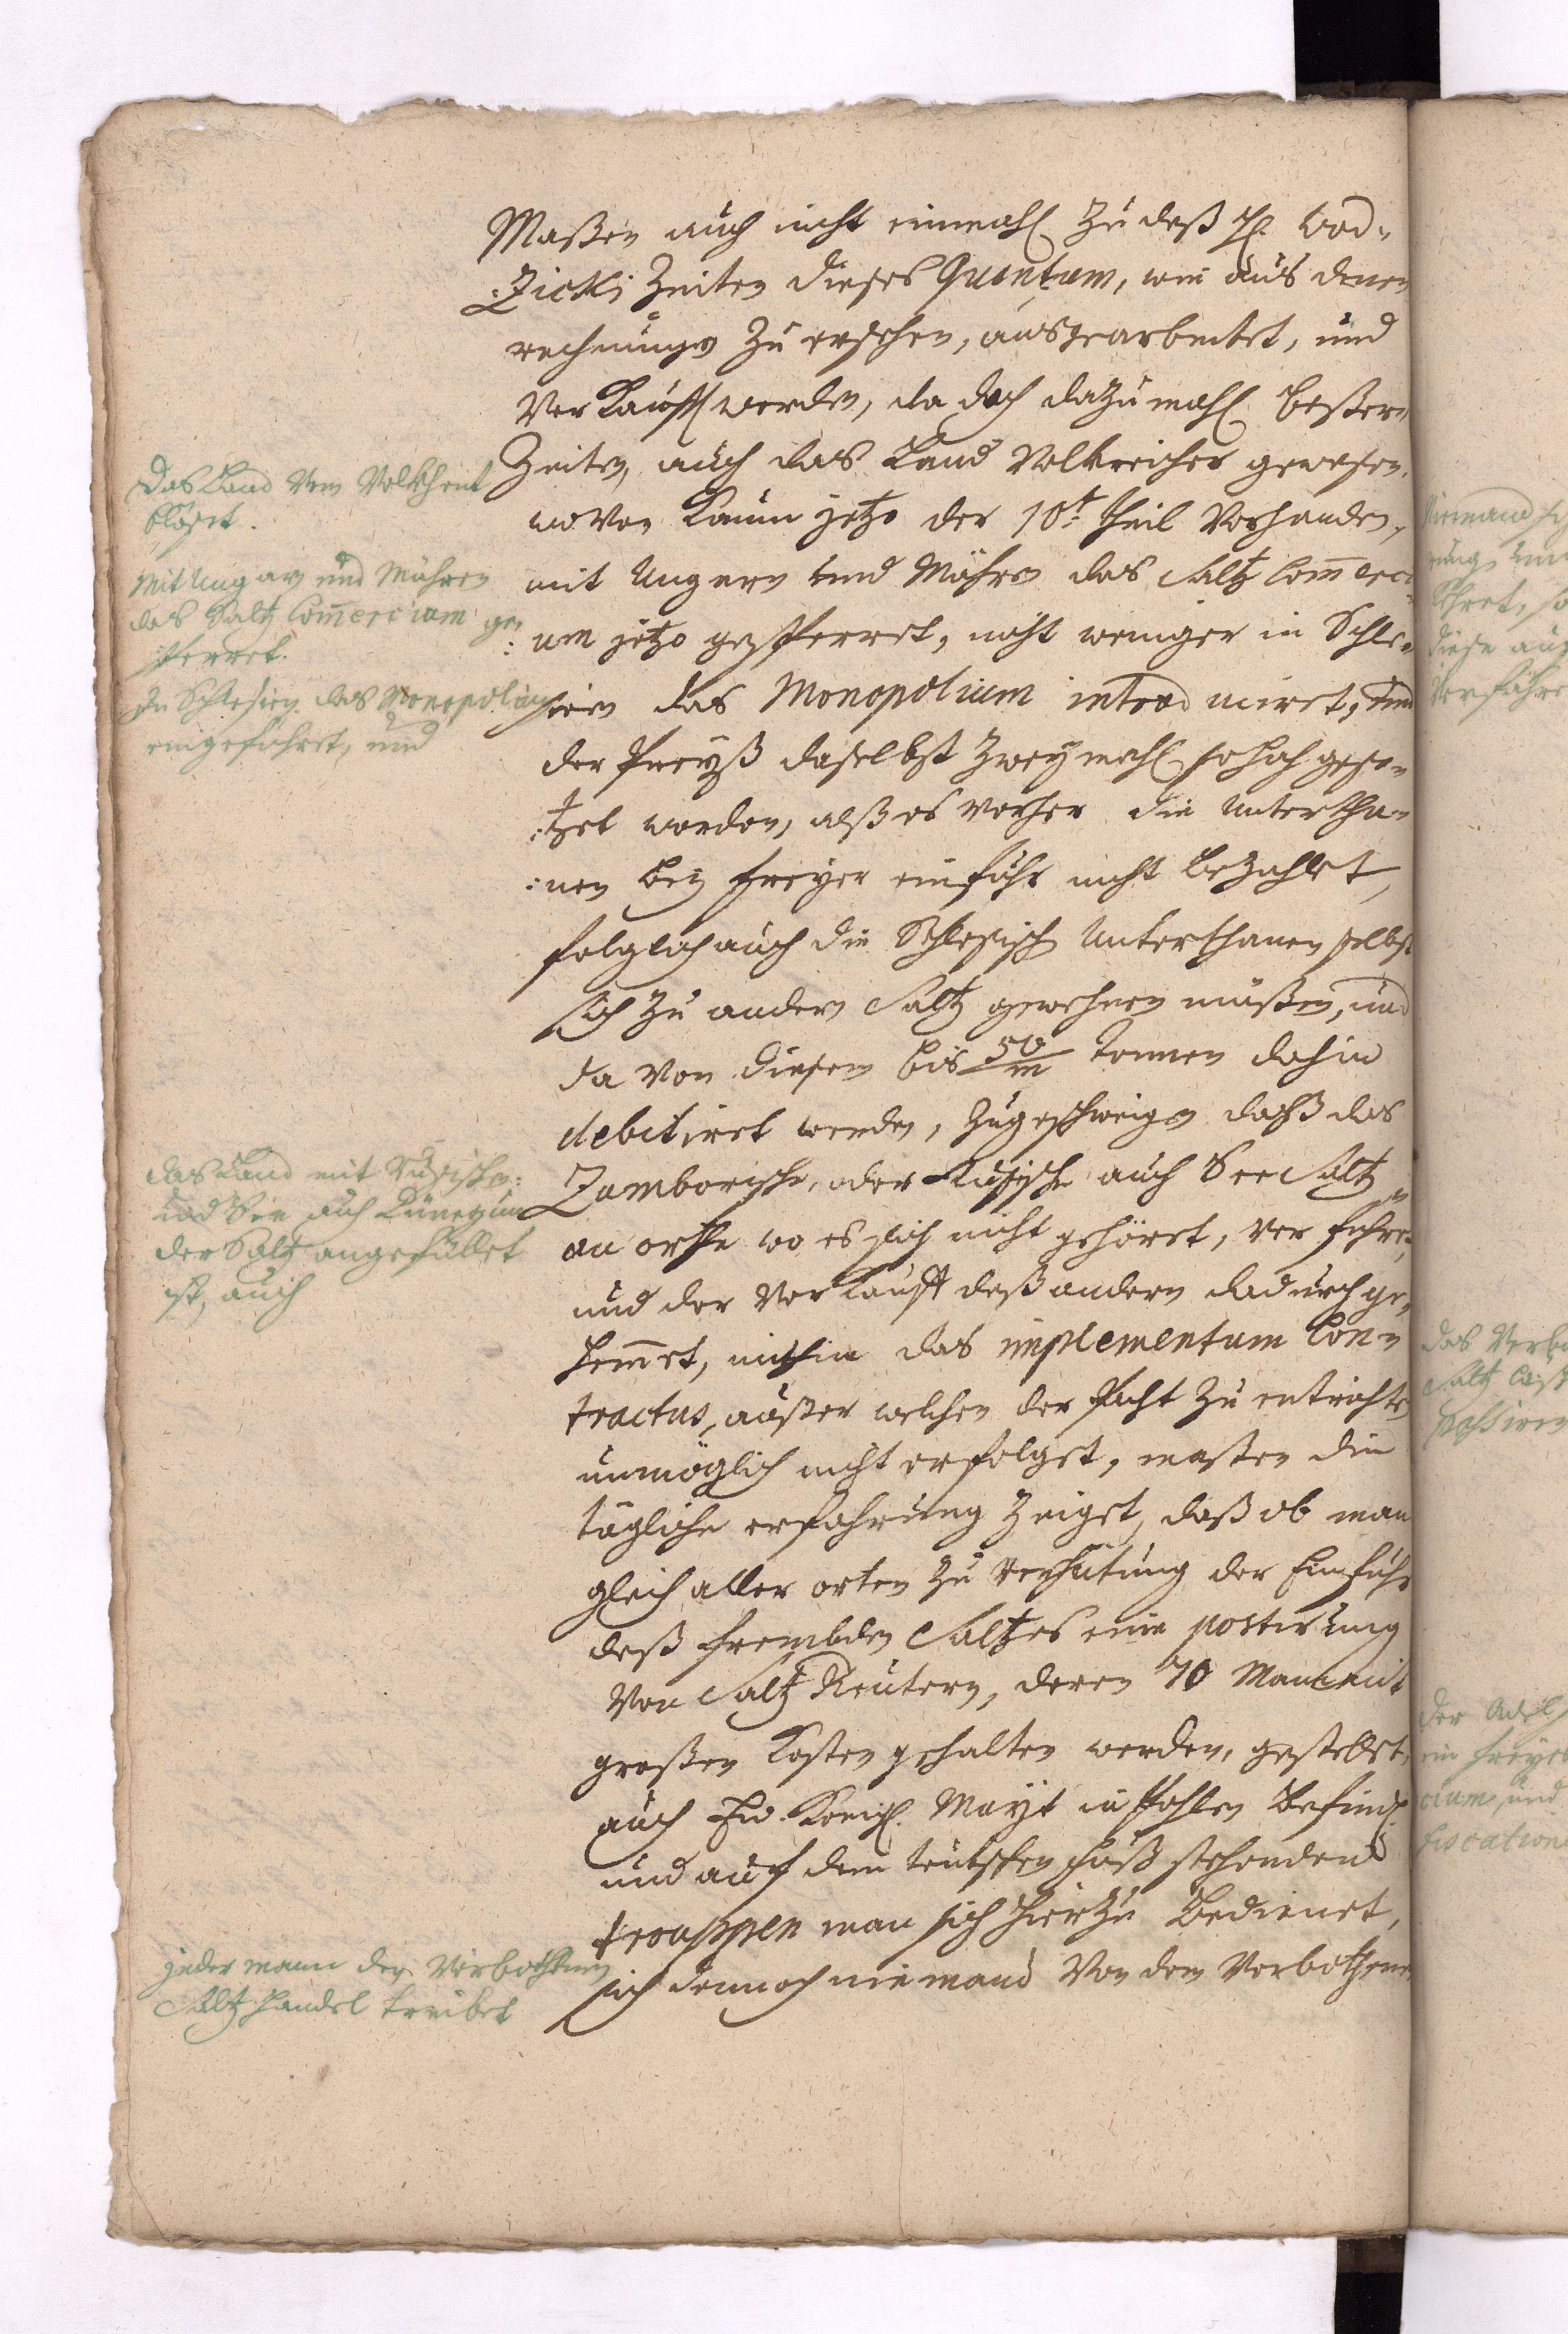 Maßen auch nicht einmahl zu deß H. Wod-
:Zicki Zeiten dieses Quantum, wie aus denen
rechnungen zu ersehen, ausgearbeitet, und
verkaufft worden, da doch dazumahl beßere
Zeiten, auch das Land Volkreicher gewesen,
wovon kaum jetzo der 10t. theil vorhanden,
mit Ungarn und Mähren das Saltz Com̄erci-
:um jetzo gesperret, nicht weniger in Schle-
sien das Monopolium introduciret, und
der Preyß daselbst zweymahl so hoch gese-
:tzet worden, alß es vorher die Untertha-
:nen bey freyer einfuhr nicht bezahlet,
folglich auch die Schlesische Unterthanen selbst
sich zu andern Saltz gewehnen müßen, und
da von diesem bis 50/m Tonnen dahin
debitiret werden, zugeschweigen daß das
Zamborische, oder Rußische auch See Saltz
an orthe wo es sich nicht gehöret, verführet,
und der Verkaufft deß andern dadurch ge-
hem̄et, mithin das implementum Con-
tractus, außer welchen der Pacht zu entrichten
unmöglich nicht erfolget, maßen die
tägliche erfahrung zeiget, daß ob man
gleich aller orten zu verhütung der Einfuhr
deß frembden Saltzes eine postirung
von Saltz Reutern, deren 70 Mann mit
großen Kosten gehalten werden, gestellet,
auch Ew. Königl. Mayt in Pohlen befindl.
und auf dem teutschen fuß stehenden
trouppen man sich hierzu bedienet,
sich dennoch niemand von dem verbothenen
das Land vom Volkh ent
blößet.
Mit Ungarn und Mähren
das Saltz Com̄ercium ge-
sperret.
In Schlesien das Monopolium
eingeführet, und
das Land mit Rußischen:
und See auch
der Saltz angefüllet
ist, auch
jedermann den verbothenen
Saltz handel treibet
Niemand
rung
diese auch
das Verbo
Saltz
passiren
der Adel
ein freyes
cium, und
fiscation